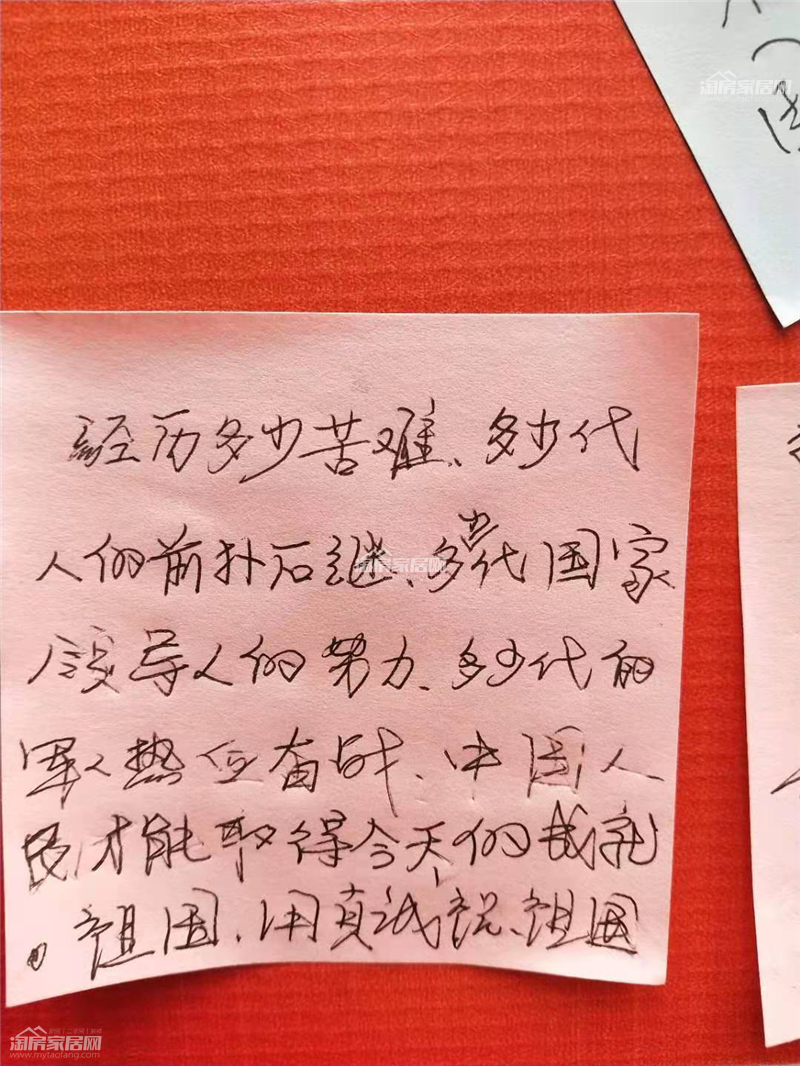 淘房家居网
经历多少苦难、多少代
人的前扑后继、多少代国家
领导人的努力、多少代的
军人热血奋战、中国人
民才能取得今天的成就
。祖国、用真诚祝、祖国
淘房家居网
淘房家居网
www.mytaofang.com